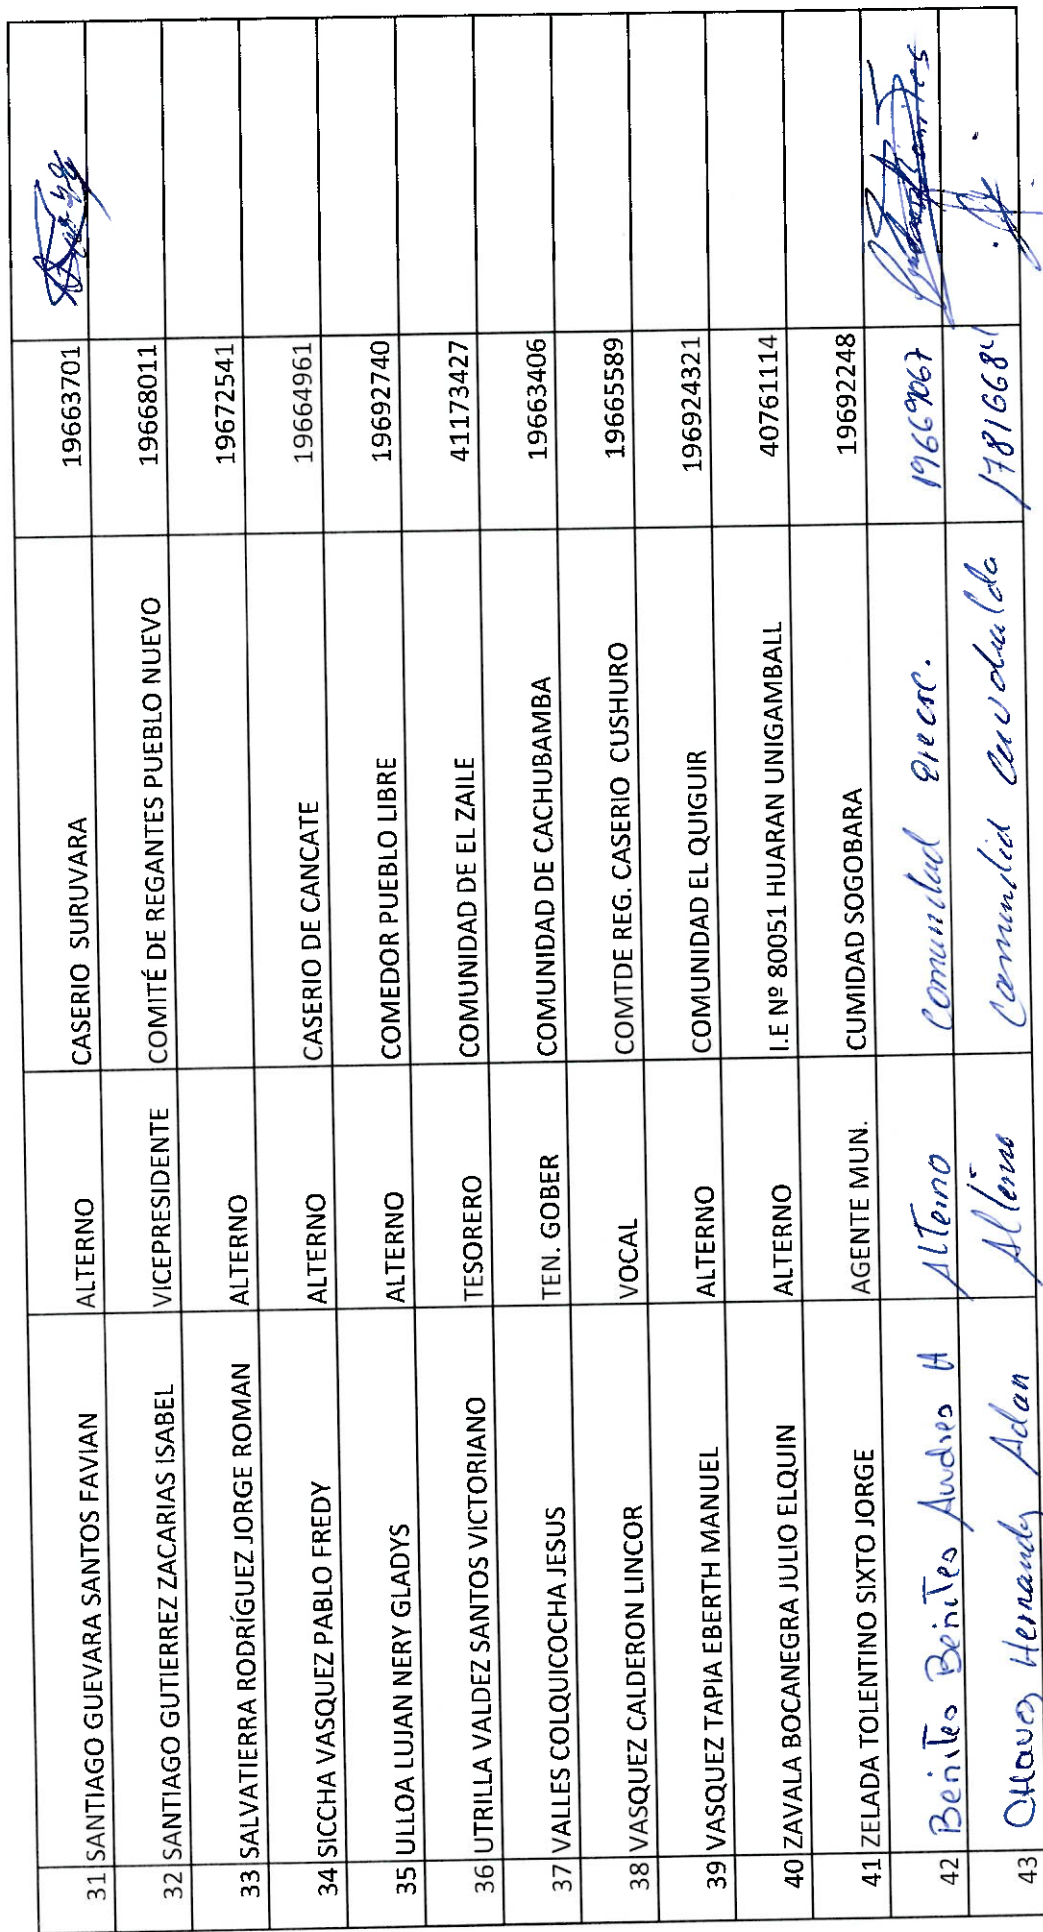 31 SANTIAGO GUEVARA SANTOS FAVIAN ALTERNO CASERIO SURUVARA 19663701
32 SANTIAGO GUTIERREZ ZACARIAS ISABEL VICEPRESIDENTE COMITÉ DE REGANTES PUEBLO NUEVO 19668011
33 SALVATIERRA RODRÍGUEZ JORGE ROMAN ALTERNO 19672541
34 SICCHA VASQUEZ PABLO FREDY ALTERNO CASERIO DE CANCATE 19664961
35 ULLOA LUJAN NERY GLADYS ALTERNO COMEDOR PUEBLO LIBRE 19692740
36 UTRILLA VALDEZ SANTOS VICTORIANO TESORERO COMUNIDAD DE EL ZAILE 41173427
37 VALLES COLQUICOCHA JESUS TEN. GOBER COMUNIDAD DE CACHUBAMBA 19663406
38 VASQUEZ CALDERON LINCOR VOCAL COMTDE REG. CASERIO CUSHURO 19665589
39 VASQUEZ TAPIA EBERTH MANUEL ALTERNO COMUNIDAD EL QUIGUIR 196924321
40 ZAVALA BOCANEGRA JULIO ELQUIN ALTERNO I.E Nº 80051 HUARAN UNIGAMBALL 40761114
41 ZELADA TOLENTINO SIXTO JORGE AGENTE MUN. CUMIDAD SOGOBARA 19692248
42 Benites Benites Andres H Alterno Comunidad 19669067
43 Chavez Hernandez Adan Alterno 17816684